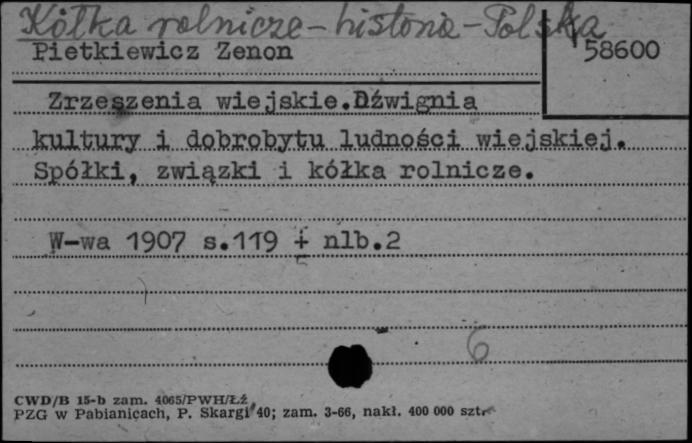 Kółka rolnicze - historia - Polska
Pietkiewicz Zenon
58600
Zrzeszenia wiejskie.Dźwignia
kultury i dobrobytu ludności wiejskiej.
Spółki, związki i kółka rolnicze.
W-wa 1907 s.119 + nlb.2
6
CWD/B 15-b zam. 4065/PWH/Łź
PZG w Pabianicach, P. Skargi 40; zam. 3-66, nakł. 400 000 szt.